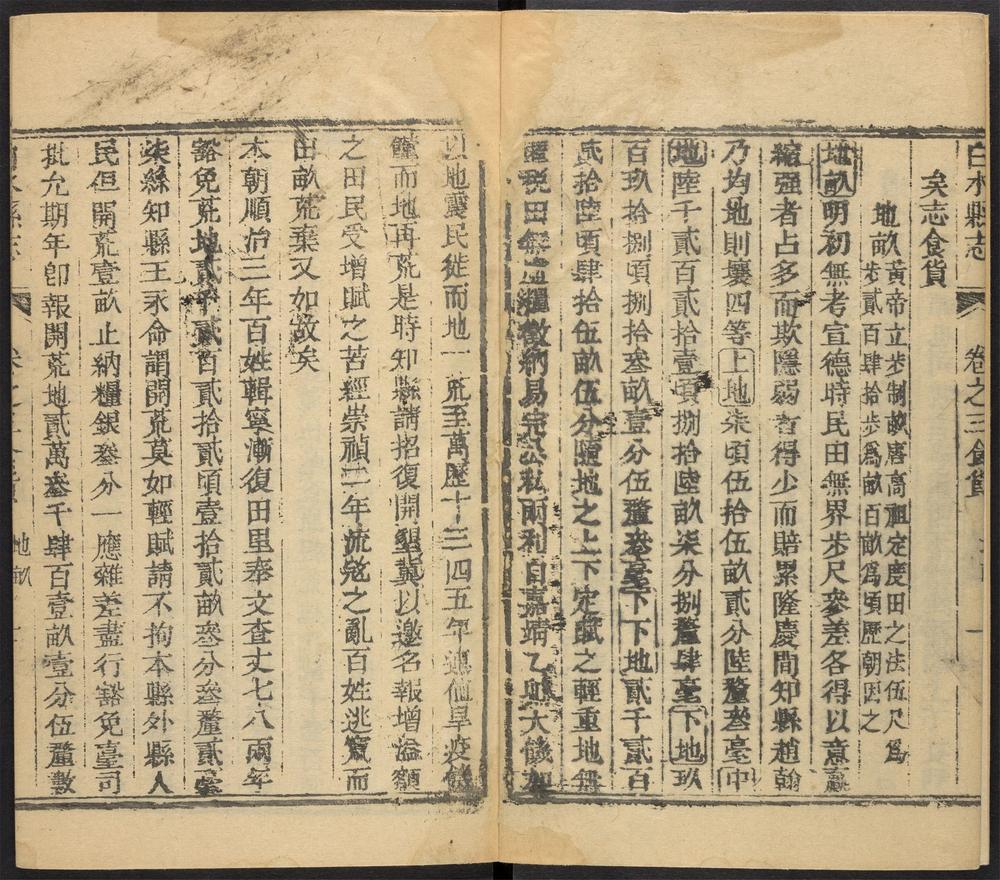 白水縣志 卷之三食貨 一
矣志食貨
地畝黃帝立步制畝唐高祖定度田之法伍尺為
步貳百肆拾步為畝百畝為頃歷朝因之
地畝明初無考宣德時民田無界步尺參差各得以意贏
縮强者占多而欺隱弱者得少而賠累隆慶間知縣趙翰
乃均地則壤四等上地柒頃伍拾伍畝貳分陸釐叁毫中
地陸千貳百貳拾壹頃捌拾陸畝柒分捌釐肆毫下地玖
百玖拾捌頃捌拾叁畝壹分伍釐叁毫下下地貳千貳百
貳拾陸頃肆拾伍畝伍分隨地之上下定賦之輕重地無
稅田無 糧徵納易完公私兩利自嘉靖乙卯大饑加
以地震民徙而地一荒至萬歷十三四五年連值旱疫饑
饉而地再荒是時知縣請招復開墾冀以邀名報增溢額
之田民受增賦之苦經崇禎二年流冦之亂百姓逃竄而
田畝荒棄又如故矣
本朝順治三年百姓輯寧漸復田里奉文查丈七八兩年
豁免荒地貳千貳百貳拾貳頃壹拾貳畝叁分叁釐貳毫
柒絲知縣王永命謂開荒莫如輕賦請不拘本縣外縣人
民但開荒壹畝止納糧銀叁分一應雜差盡行豁免臺司
批允期年卽報開荒地貳萬叁千肆百壹畝壹分伍釐數
水縣志 卷之三 地畝